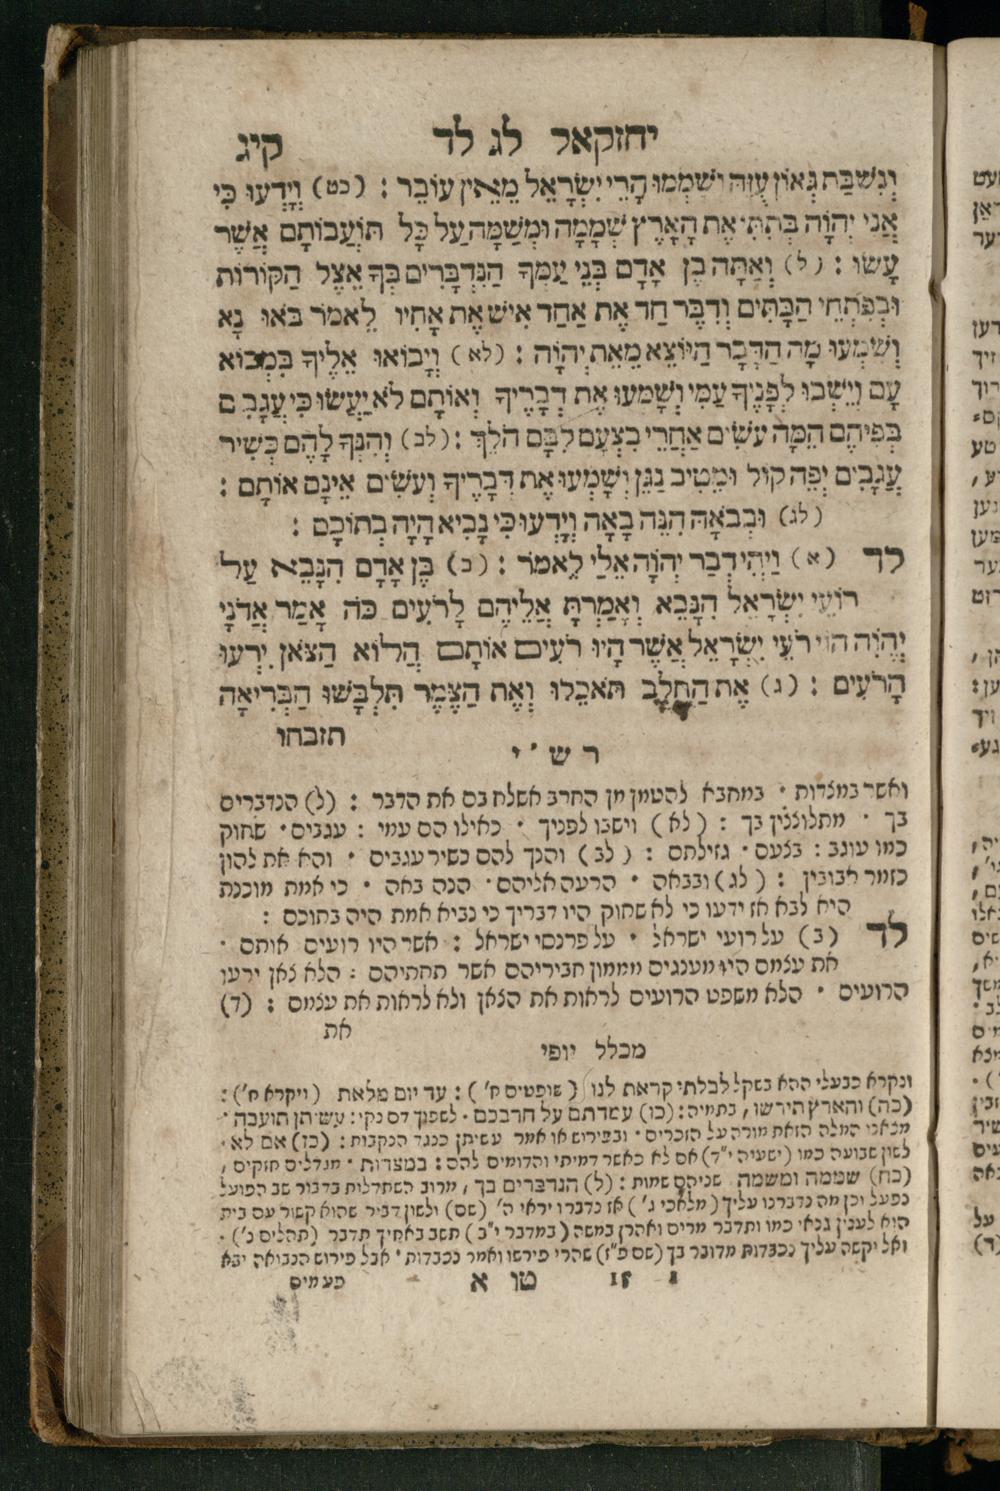 יחזקאל לג לד קיג
וְנִשְׁבַּת גְּאוֹן עֻזָּהּ וְשָׁמְמוּ הָרֵי יִשְׂרָאֵל מֵאֵין עוֹבֵר : (כט) וְיָדְעוּ כִּי
אֲנִי יְהוָֹה בְּתִתִּי אֶת הָאָרֶץ שְׁמָמָה וּמְשַׁמָּה עַל כָּל תּוֹעֲבוֹתָם אֲשֶׁר
עָשׂוּ : (ל) וְאַתָּה בֶן אָדָם בְּנֵי עַמְּךָ הַנִּדְבָּרִים בְּךָ אֵצֶל הַקּוֹרוֹת
וּבְפִתְחֵי הַבָּתִּים וְדִבֶּר חַד אֶת אַחַד אִישׁ אֶת אָחִיו לֵאמֹר בֹּאוּ נָא
וְשִׁמְעוּ מָה הַדָּבָר הַיּוֹצֵא מֵאֵת יְהוָֹה : (לא) וְיָבוֹאוּ אֵלֶיךָ כִּמְבוֹא
עָם וְיֵשְׁבוּ לְפָנֶיךָ עַמִּי וְשָׁמְעוּ אֶת דְּבָרֶיךָ וְאוֹתָם לֹא יַעֲשׂוּ כִּי עֲגָבִים
בְּפִיהֶם הֵמָּה עֹשִׂים אַחֲרֵי בִצְעָם לִבָּם הֹלֵךְ : (לב) וְהִנְּךָ לָהֶם כְּשִׁיר
עֲגָבִים יְפֵה קוֹל וּמֵטִיב נַגֵּן וְשָׁמְעוּ אֶת דְּבָרֶיךָ וְעֹשִׂים אֵינָם אוֹתָם :
(לג) וּבְבֹאָהּ הִנֵּה בָאָה וְיָדְעוּ כִּי נָבִיא הָיָה בְתוֹכָם :
לד (א) וַיְהִי דְבַר יְהוָֹה אֵלַי לֵאמֹר : (ב) בֶּן אָדָם הִנָּבֵא עַל
רוֹעֵי יִשְׂרָאֵל הִנָּבֵא וְאָמַרְתָּ אֲלֵיהֶם לָרֹעִים כֹּה אָמַר אֲדֹנָי
יְהוִֹה הוֹי רֹעֵי יִשְׂרָאֵל אֲשֶׁר הָיוּ רֹעִים אוֹתָם הֲלוֹא הַצֹּאן יִרְעוּ
הָרֹעִים : (ג) אֶת הַחֵלֶב תֹּאכֵלוּ וְאֶת הַצֶּמֶר תִּלְבָּשׁוּ הַבְּרִיאָה
תזבחו
ר ש ' י
ואשר במצדות · במחבא להטמן מן החרב אשלח בם את הדבר : (ל) הנדברים
בך · מתלוננין בך : (לא) וישבו לפניך · כאילו הם עמי : עגבים · שחוק
כמו עוגב : בצעם · גזילתם : (לב) והנך להם כשיר עגבים · והא את להון
כזמר אבובין : (לג) ובבאה · הרעה אליהם · הנה באה · כי אמת מוכנת
היא לבא אז ידעו כי לא שחוק היו דבריך כי נביא אמת היה בתוכם :
לד (ב) על רועי ישראל · על פרנסי ישראל : אשר היו רועים אותם ·
את עצמם היו מענגים מממון חביריהם אשר תחתיהם : הלא צאן ירעו
הרועים · הלא משפט הרועים לראות את הצאן ולא לראות את עצמם : (ד)
את
מכלל יופי
ונקרא כבעלי ההא בשקל לבלתי קראת לנו (שופטים ח') : עד יום מלאת (ויקרא ח') :
(כה) והארץ תירשו, בתמיה : (כו) עמדתם על חרבכם · לשפוך דם נקי : עשיתן תועבה ·
מצאנו המלה הזאת מורה על הזכרים · ובפירוש או אמר עשיתן כנגד הנקבות : (כז) אם לא ·
לשון שבועה כמו (ישעיה י"ד) אם לא כאשר דמיתי והדומים להם : במצדות · מגדלים חזקים,
(כח) שממה ומשמה · שניהם שמות : (ל) הנדברים בך, מרוב השתדלות בדבור שב הפועל
נפעל וכן מה נדברנו עליך (מלאכי ג') אז נדברו יראי ה' (שם) ולשון דביר שהוא קשור עם בית
הוא לענין גנאי כמו ותדבר מרים ואהרן במשה (במדבר י"ב) תשב באחיך תדבר (תהלים נ') ·
ואל יקשה עליך נכבדות מדובר בך (שם פ"ז) שהרי פירשו ואמר נכבדות · אבל פירוש הנבואה יבא
טו א 15 פעמים